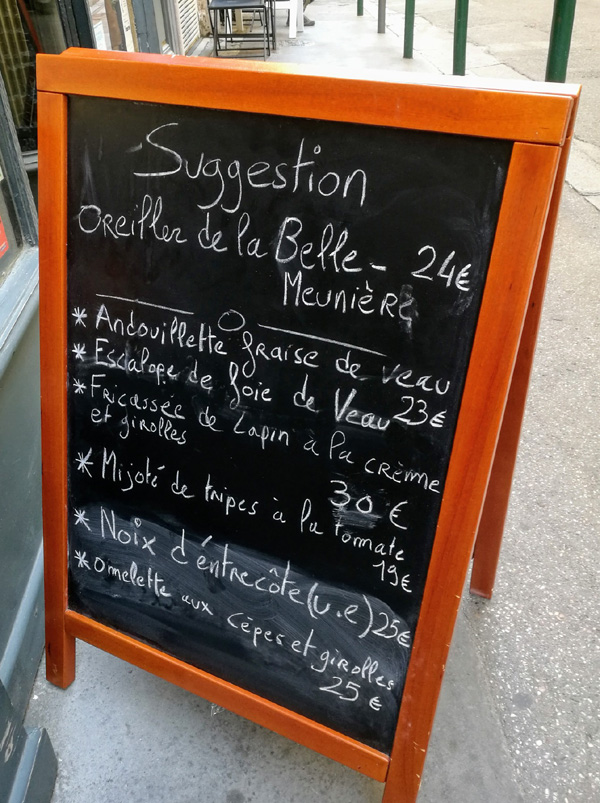 Suggestion
Oreiller de la Belle - 24€
Meunière
* Andouillette fraise de veau
* Escalope de foie de Veau 23€
* Fricassée de lapin à la crème
et girolles
30 €
* Mijoté de tripes à la tomate
19€
* Noix d'éntrecôte (u.e) 25€
* omelette aux
cèpes et girolles
25 €